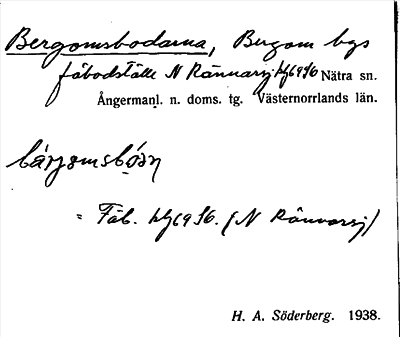 Bergomsbodarna, Bergom bys
fäbodställe N Rännarsj Nätra sn.
Ångermanl. n. doms. tg. Västernorrlands län.
= Fäb. (N Rännarsj)
H. A. Söderberg. 1938.